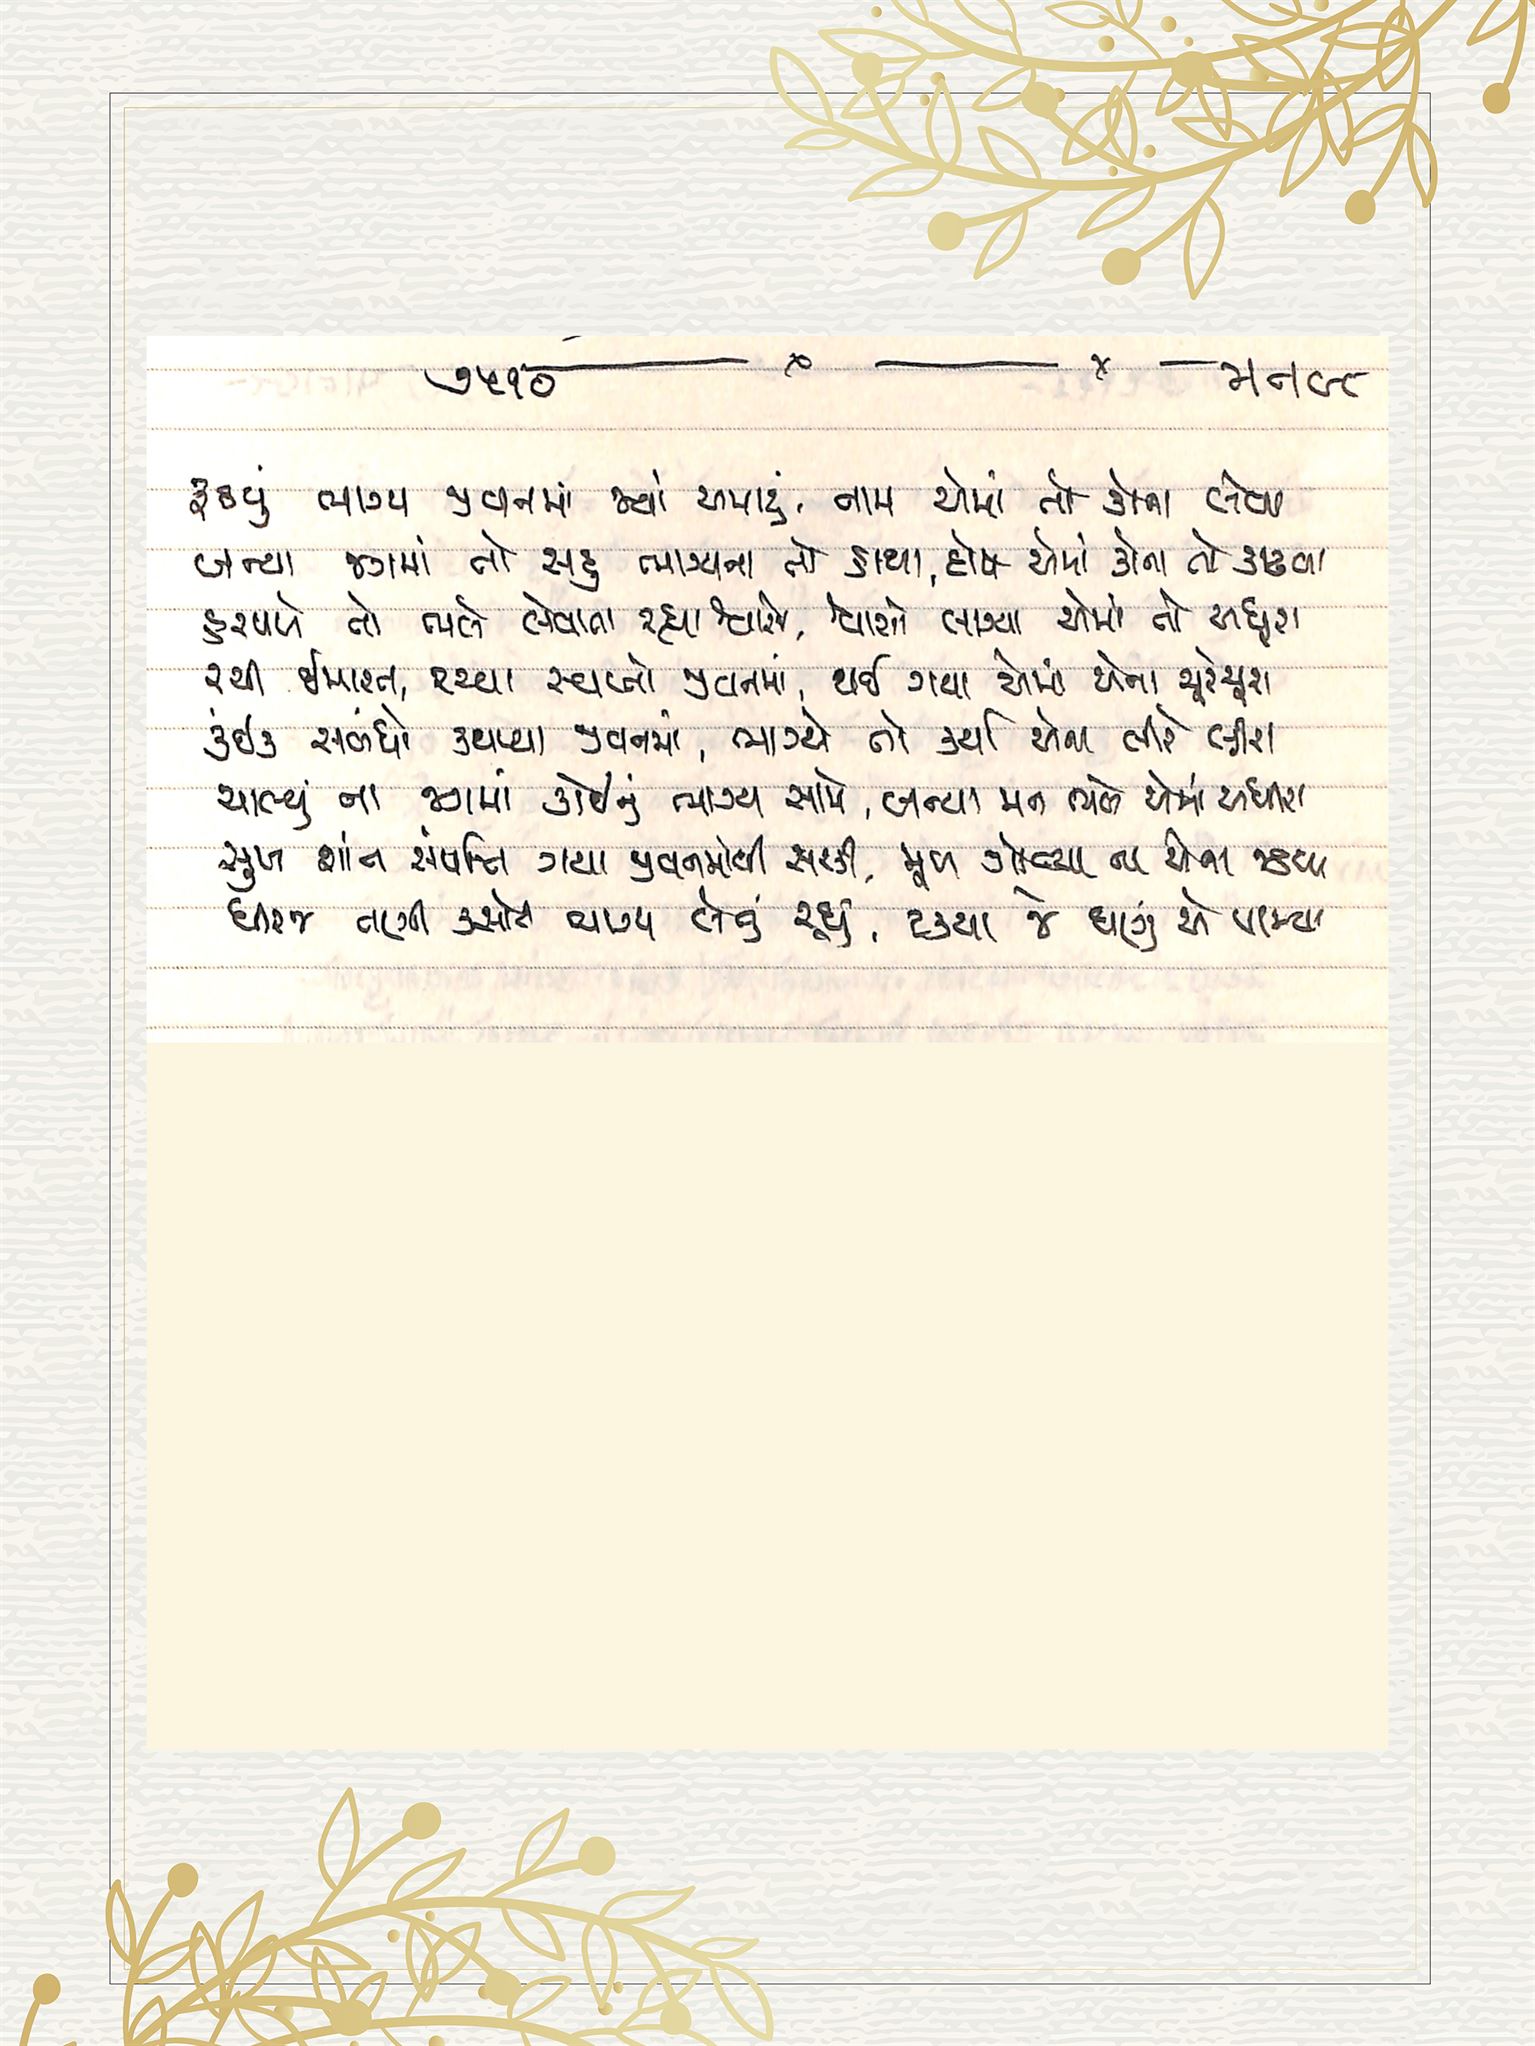 ૭૫૧૦ મનન
રૂઠયું ભાગ્ય જીવનમાં જ્યાં અમારું, નામ એમાં તો કોના લેવા
બન્યા જગમાં તો સહુ ભાગ્યના તો હાથા, દોષ એમાં કોના તો કાઢવા
હરપળે તો ભલે લેવાતા રહ્યા શ્વાસો, શ્વાસો લાગ્યા એમાં તો અધૂરા
રચી ઈમારત, રચ્યા સ્વપ્નો જીવનમાં, થઈ ગયા એમાં એના ચૂરેચૂરા
કંઈક સબંધો સ્થપાયા જીવનમાં, ભાગ્યે તો કર્યા એના લીરે લીરા
ચાલ્યું ના જગમાં કોઈનું ભાગ્ય સામે, બન્યા મન ભલે એમાં અધીરા
સુખ શાંત સંપત્તિ ગયા જીવનમાંથી સરકી, મૂળ ગોત્યા ના એના જડયા
ધીરજ તણી કસોટી ભાગ્ય લેતું રહ્યું, ટકયા જે ઘણું એ પામ્યા